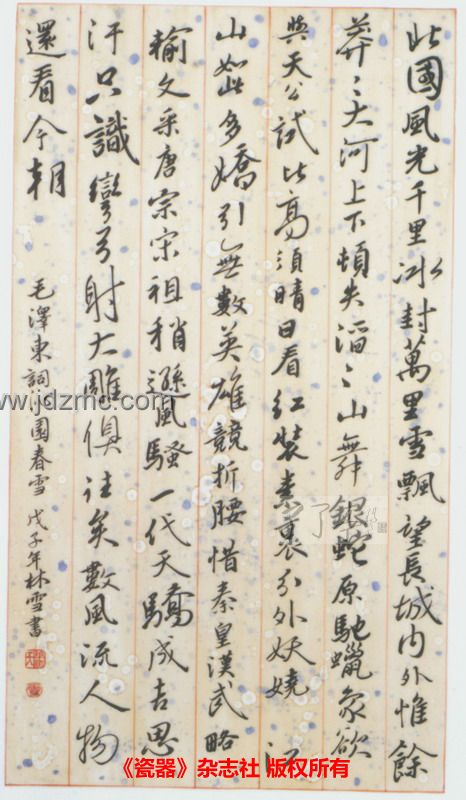 北國風光千里冰封萬里雪飄望長城內外惟餘
莽〻大河上下頓失滔〻山舞銀蛇原馳蠟象欲
與天公試比高須晴日看紅裝素裹分外妖嬈 江
山如此多嬌引無數英雄競折腰惜秦皇漢武略
輸文采唐宗宋祖稍遜風騷一代天驕成吉思
汗只識彎弓射大雕俱往矣數風流人物
還看今朝
毛澤東詞沁園春雪 戊子年林雪書
www.jdzmc.com
《瓷器》杂志社 版权所有